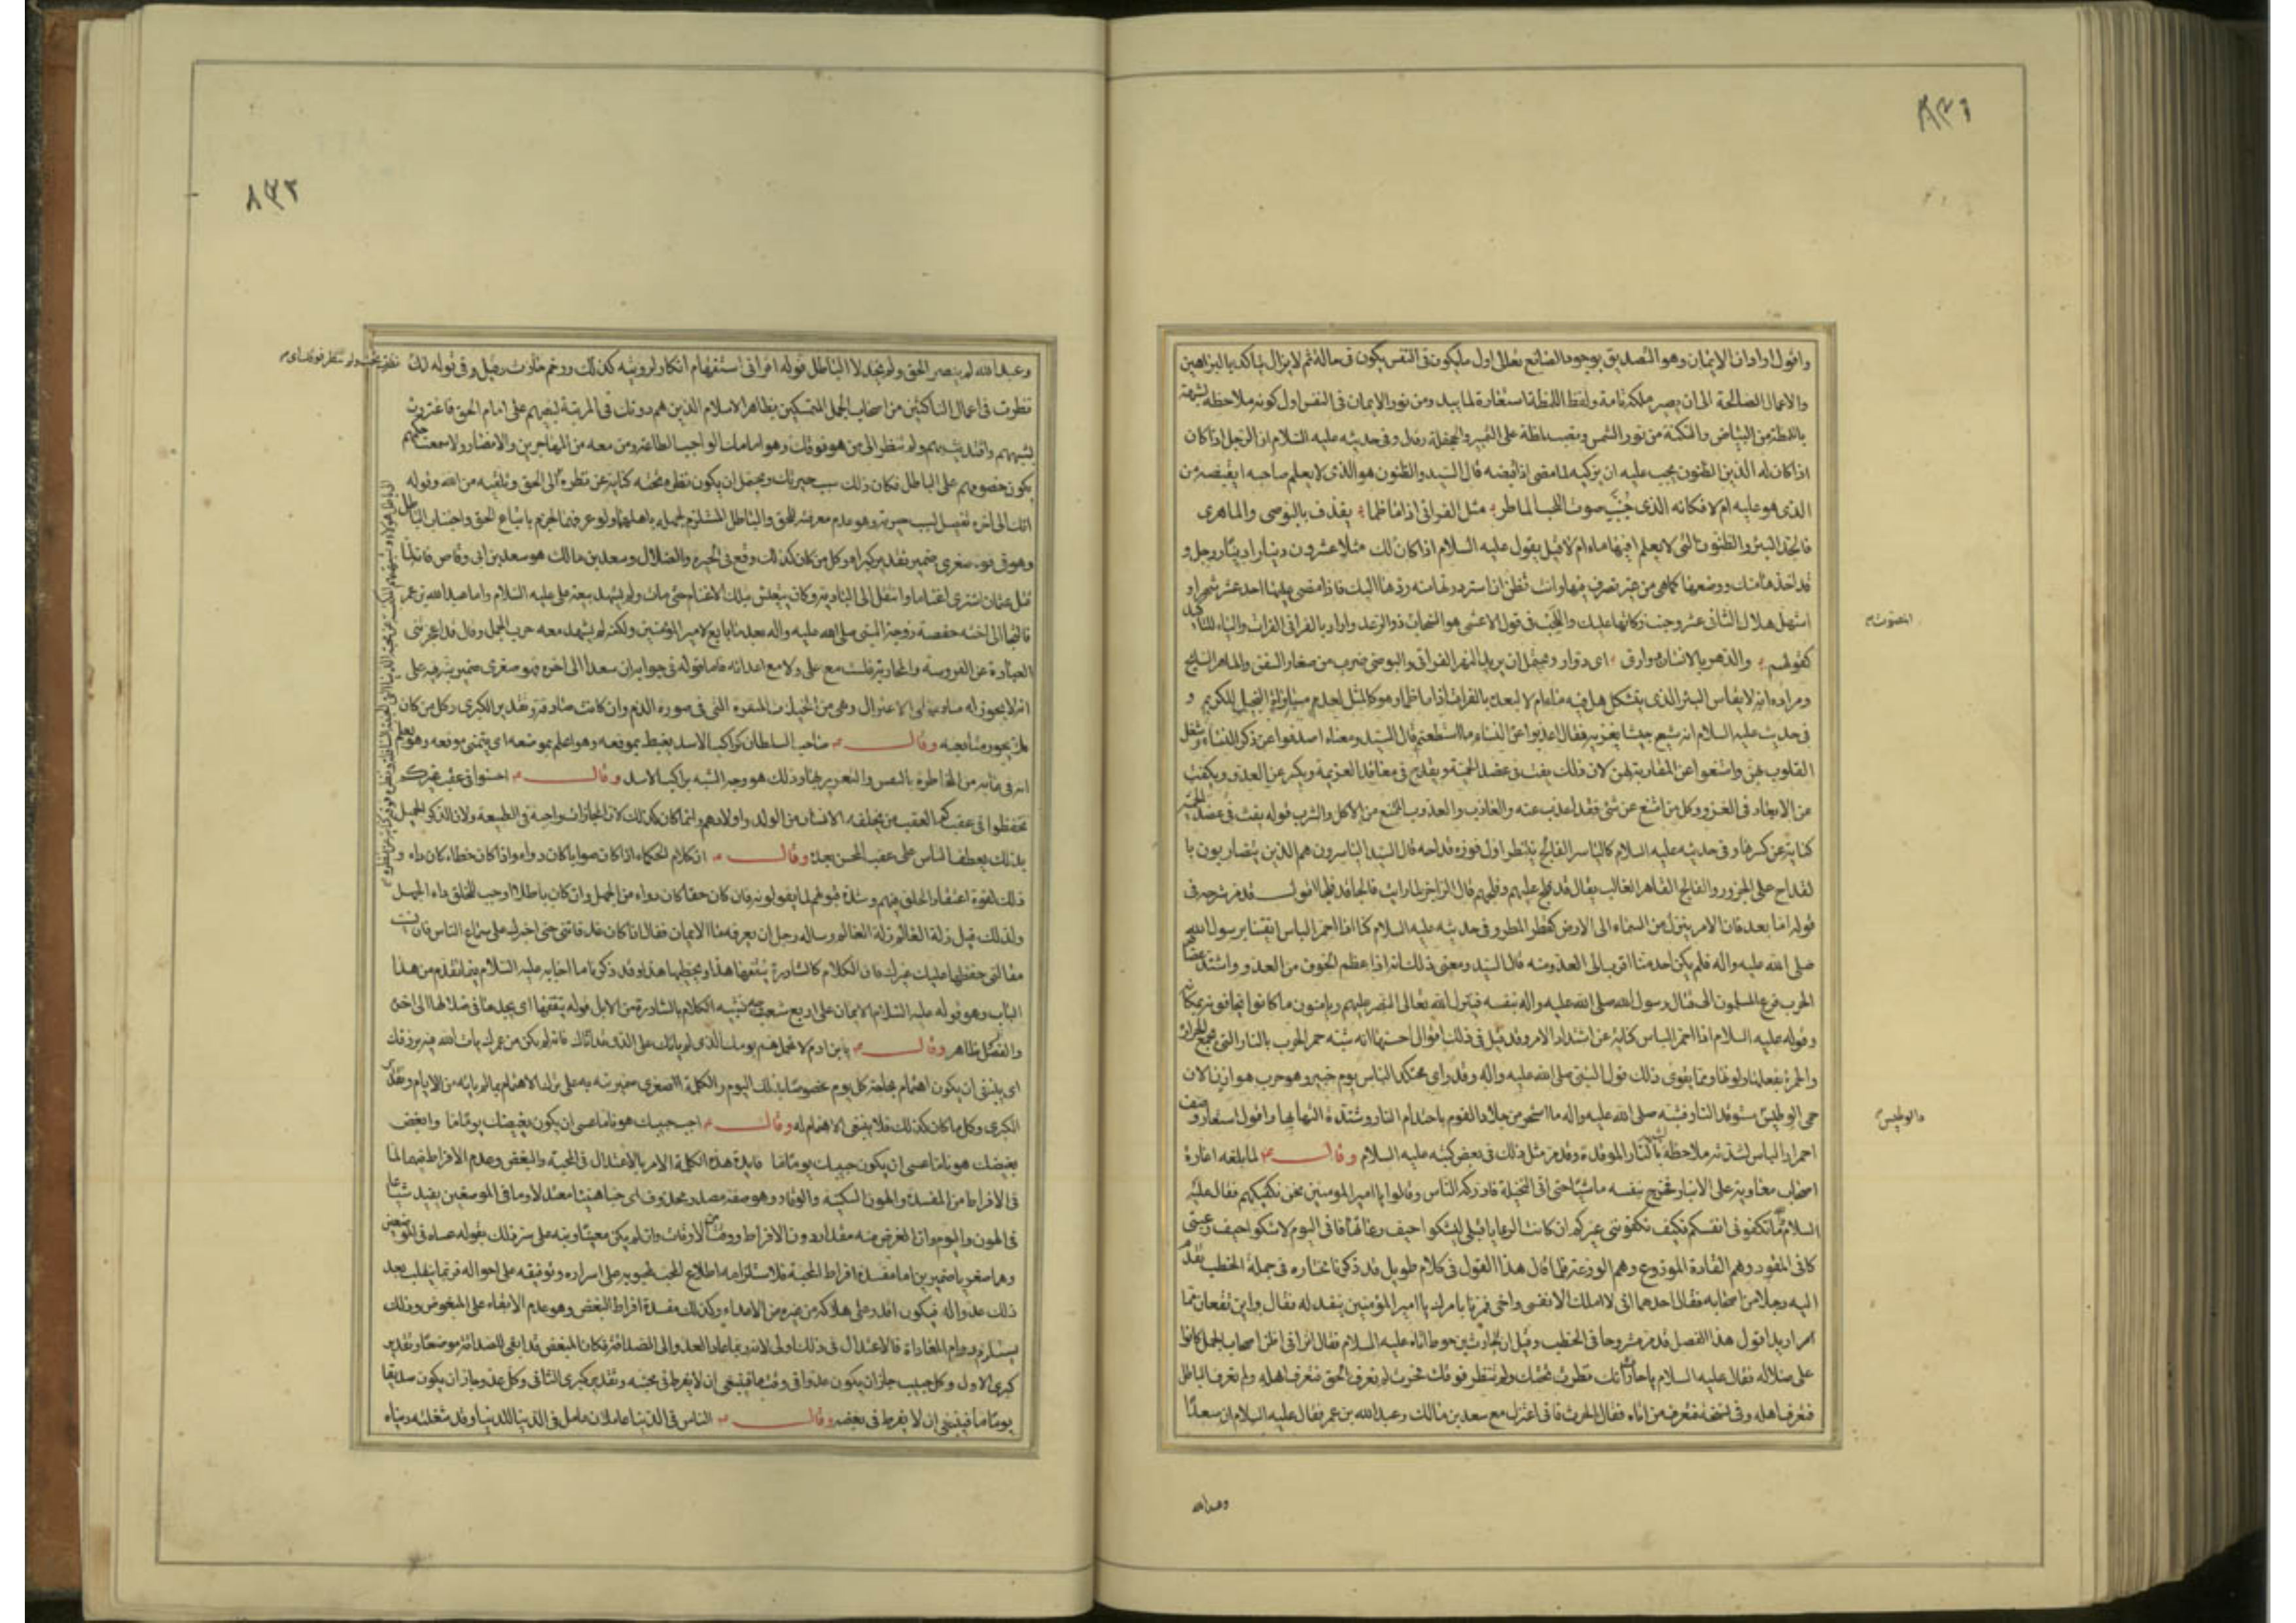 ٨٣١
واقول اراد ان الايمان وهو التصديق بوجود الصانع تعالى اول ما يكون فى النفس يكون فى حالة ثم لا يزال يتاكد بالبراهين
والاعمال الصالحة الى ان يصير ملكة تامة ولفظ اللمظة استعارة لما يبدو من نور الايمان فى النفس اول كونه ملاحظة لشبهه
باللمظة من البياض والنكتة من نور الشمس ونصب لمظة على التميز وفى حديثه عليه السلام ان الرجل اذا كان
اذا كان له الدين الظنون يجب عليه ان يزكيه لما مضى اذا قبضه قال السيد والظنون هو الذى لا يعلم صاحبه ايقبضه من
الذى هو عليه ام لا فكانه الذى صوت اللجب الماطر مثل الفراتى اذا ما طما يقذف بالبوصى والماهرى
فالجد البئر والظنون التى لا يعلم افيها ماء ام لا قيل يقول عليه السلام اذا كان لك مثلا عشرون دينارا دينار رجل و
قد اخذها منك ووضعها كما هى من غير تصرف فيها وانت تظن ان استرددتها منه ردها اليك فاذا مضى عليها احد عشر شهرا و
استهل هلال الثانى عشر وجبت زكاتها عليك واللجب فى قول الاعشى هو السحاب ذو الرعد واراد بالفراتى الفرات والياء للتاكيد
كقولهم والدهر بالانسان دوارى اى دوار ويحتمل ان يريد النهر الفراتى والبوصى ضرب من صغار السفن والماهر السابح
ومراده انه لا يقاس البئر الذى يتشكل هل فيه ماء ام لا لبعده بالفرات اذا ما طما وهو كالمثل لعدم مساواة البخيل للكريم و
فى حديث عليه السلام انه شيع جيشا يغزيه فقال اعذبوا عن النساء ما استطعتم قال السيد ومعناه اصدفوا عن ذكر النساء وشغل
القلوب بهن وامتنعوا عن المقاربة لهن لان ذلك يفت فى عضد الحمية ويقدح فى معاقد العزيمة ويكسر عن العدو ويلفت
عن الابعاد فى الغزو وكل من امتنع عن شئ فقد اعذب عنه والعاذب والعذوب الممتنع من الاكل والشرب قوله يفت فى عضد الحمية
كناية عن كسرها وفى حديثه عليه السلام كالياسر الفالج ينتظر اول فوزة قداحه قال السيد الياسرون هم الذين يتضاربون با
لقداح على الجزور والفالج القاهر الغالب يقال قد فلج عليهم وفلجهم قال الراجز لما رايت فالجا قد فلجا اقول قد مر شرحه فى
قوله اما بعد فان الامر ينزل من السماء الى الارض كقطر المطر وفى حديثه عليه السلام كنا اذا احمر الباس اتقينا برسول الله
صلى الله عليه واله فلم يكن احد منا اقرب الى العدو منه قال السيد ومعنى ذلك انه اذا عظم الخوف من العدو واشتد عضاض
الحرب فزع المسلمون الى قتال رسول الله صلى الله عليه واله بنفسه فينزل الله تعالى النصر عليهم ويامنون ما كانوا يخافونه بمكانه
وقوله عليه السلام اذا احمر الباس كناية عن اشتداد الامر وقد قيل فى ذلك اقوال احسنها انه شبه حمى الحرب بالنار التى تجمع الحرارة
والحمرة بفعلها ولونها ومما يقوى ذلك قول النبى صلى الله عليه واله وقد راى مجتلد الناس يوم حنين وهو حرب هوازن الان
حمى الوطيس مستوقد النار فشبه صلى الله عليه واله ما استحر من جلاد القوم باحتدام النار وشدة التهابها واقول استعار وصف
احمرار الباس لشدته ملاحظة لشبهه بالنار الموقدة وقد مر مثل ذلك فى بعض كتبه عليه السلام وقال ع لما بلغه اغارة
اصحاب معاوية على الانبار فخرج بنفسه ماشيا حتى اتى النخيلة فادركه الناس وقالوا يا امير المؤمنين نحن نكفيكهم فقال عليه
السلام ما تكفوننى انفسكم فكيف تكفوننى غيركم ان كانت الرعايا قبلى لتشكوا حيف رعاتها فانى اليوم لاشكوا حيف رعيتى
كانى المقود وهم القادة الموزوع وهم الوزعة فلما قال هذا القول فى كلام طويل قد ذكرنا مختاره فى جملة الخطب تقدم
اليه رجلان من اصحابه فقال احدهما انى لا املك الا نفسى واخى فمرنا بامرك يا امير المؤمنين ينفد له فقال واين تقعان مما
اريد اقول هذا الفصل قد مر مشروحا فى الخطب وقيل ان الحارث بن حوط اتاه عليه السلام فقال اترانى اظن اصحاب الجمل كانوا
على ضلالة فقال عليه السلام يا حارث انك نظرت تحتك ولم تنظر فوقك فحرت لم تعرف الحق فتعرف اهله ولم تعرف الباطل
فتعرف اهله وفى نسخة فتعرف من اتاه فقال الحرث فانى اعتزل مع سعد بن مالك وعبد الله بن عمر فقال عليه السلام ان سعدا
والوطيس
وعبد الله
٨٣٢
وعبد الله لم ينصر الحق ولم يخذلا الباطل قوله اترانى استفهام انكار لرؤيته كذلك ورخم حارث وقيل وفى قوله انك
نظرت فى اعمال الناكثين من اصحاب الجمل المتمسكين بظاهر الاسلام الذين هم دونك فى المرتبة لبغيهم على امام الحق فاغتررت
بشبهتهم واقتديت بهم ولم تنظر الى من هو فوقك وهو امامك الواجب الطاعة ومن معه من المهاجرين والانصار ولا سمعت حكمهم
بكون خصومهم على الباطل فكان ذلك سبب حيرتك ويحتمل ان يكون نظره تحته كناية عن نظره الى الحق وتلقيه من الله وقوله
انك الى اخره تفصيل لسبب حيرته وهو عدم معرفته للحق والباطل المستلزم لجهله باهلهما ولو عرفهما لجزم باتباع الحق واجتناب الباطل
وهو فى قوة صغرى ضمير تقدير كبراه وكل من كان كذلك وقع فى الحيرة والضلال وسعد بن مالك هو سعد بن ابى وقاص فانه لما
قتل عثمان اشترى اغناما وانتقل الى البادية وكان يتعيش بتلك الاغنام حتى مات ولم يشهد بيعة على عليه السلام واما عبد الله بن عمر
فالتجا الى اخته حفصة زوجة النبى صلى الله عليه واله بعد ما بايع لامير المؤمنين ولكنه لم يشهد معه حرب الجمل وقال قد اعجزتنى
العبادة عن الفروسة والمحاربة فلست مع على ولا مع اعدائه فاما قوله فى جوابه ان سعدا الى اخره فهو صغرى ضمير نبه به على
انه لا يجوز له متابعتهما فى الاعتزال وهى من المخيلات المنفرة التى فى صورة الذم وان كانت صادقة وتقدير الكبرى وكل من كان
كذلك لم يجز متابعته وقال ع صاحب السلطان كراكب الاسد يغبط بموقعه وهو اعلم بموضعه اى يتمنى موقعه وهو يعلم
انه فى غاية من المخاطرة بالنفس والتغرير بها وذلك هو وجه الشبه براكب الاسد وقال ع احسنوا فى عقب غيركم
تحفظوا فى عقبكم العقب من يخلفه الانسان من الولد واولادهم وانما كان كذلك لان المجازات واجبة فى الطبيعة ولان الذكر الجميل
بذلك يعطف الناس على عقب المحسن بعده وقال ع ان كلام الحكماء اذا كان صوابا كان دواء واذا كان خطاء كان داء و
ذلك لقوة اعتقاد الخلق فيهم وشدة قبولهم لما يقولونه فان كان حقا كان دواء من الجهل وان كان باطلا اوجب للخلق داء الجهل
ولذلك قيل زلة العالم زلة العالم وساله رجل ان يعرفه ما الايمان فقال اذا كان غد فاتنى حتى اخبرك على سماع الناس فان نسيت
مقالتى حفظها عليك غيرك فان الكلام كالشاردة يثقفها هذا ويخطئها هذا وقد ذكرنا ما اجابه عليه السلام فيما تقدم من هذا
الباب وهو قوله عليه السلام الايمان على اربع شعب شبه الكلام بالشاردة من الابل قوله يثقفها اى يجدها فى ضلالها الى اخره
والفصل ظاهر وقال ع يا بن ادم لا تحمل هم يومك الذى لم ياتك على الذى قد اتاك فانه ان يكن من عمرك يات الله فيه برزقك
اى ينبغى ان يكون اهتمام بحاجة كل يوم مخصوصا بذلك اليوم والكلمة صغرى ضمير نبه به على ترك الاهتمام بما لم يات من الايام وتقدير
الكبرى وكل ما كان كذلك فلا ينبغى الاهتمام له وقال ع احبب حبيبك هونا ما عسى ان يكون بغيضك يوما ما وابغض
بغيضك هونا ما عسى ان يكون حبيبك يوما ما فايدة هذه الكلمة الامر بالاعتدال فى المحبة والبغض وعدم الافراط فيهما لما
فى الافراط من المفسدة والهون السكينة والوقار وهو صفة مصدر محذوف اى حبا هينا معتدلا وما فى الموضعين يفيد شياعا
فى الهون واليوم وان الغرض منه مقدار دون الافراط ووقتا من الاوقات وان لم يكن معينا ونبه على سر ذلك بقوله عساه فى الموضعين
وهما صغريا ضميرين اما مفسدة افراط المحبة فلاستلزامه اطلاع المحب لمحبوبه على اسراره وتوقيفه على احواله فربما ينقلب بعد
ذلك عدوا له فيكون اقدر على هلاكه من غيره من الاعداء وكذلك مفسدة افراط البغض وهو عدم الابقاء على المبغوض وذلك
يستلزم دوام المعاداة فالاعتدال فى ذلك اولى لانه ربما عاد العدو الى الصداقة فكان المبغض قد ابقى للصداقة موضعا وتقدير
كبرى الاول وكل حبيب جاز ان يكون عدوا فى وقت ما فينبغى ان لا يفرط فى محبته وتقدير كبرى الثانى وكل عدو جاز ان يكون صديقا
يوما ما فينبغى ان لا يفرط فى بغضه وقال ع الناس فى الدنيا عاملان عامل فى الدنيا للدنيا وقد شغلته دنياه